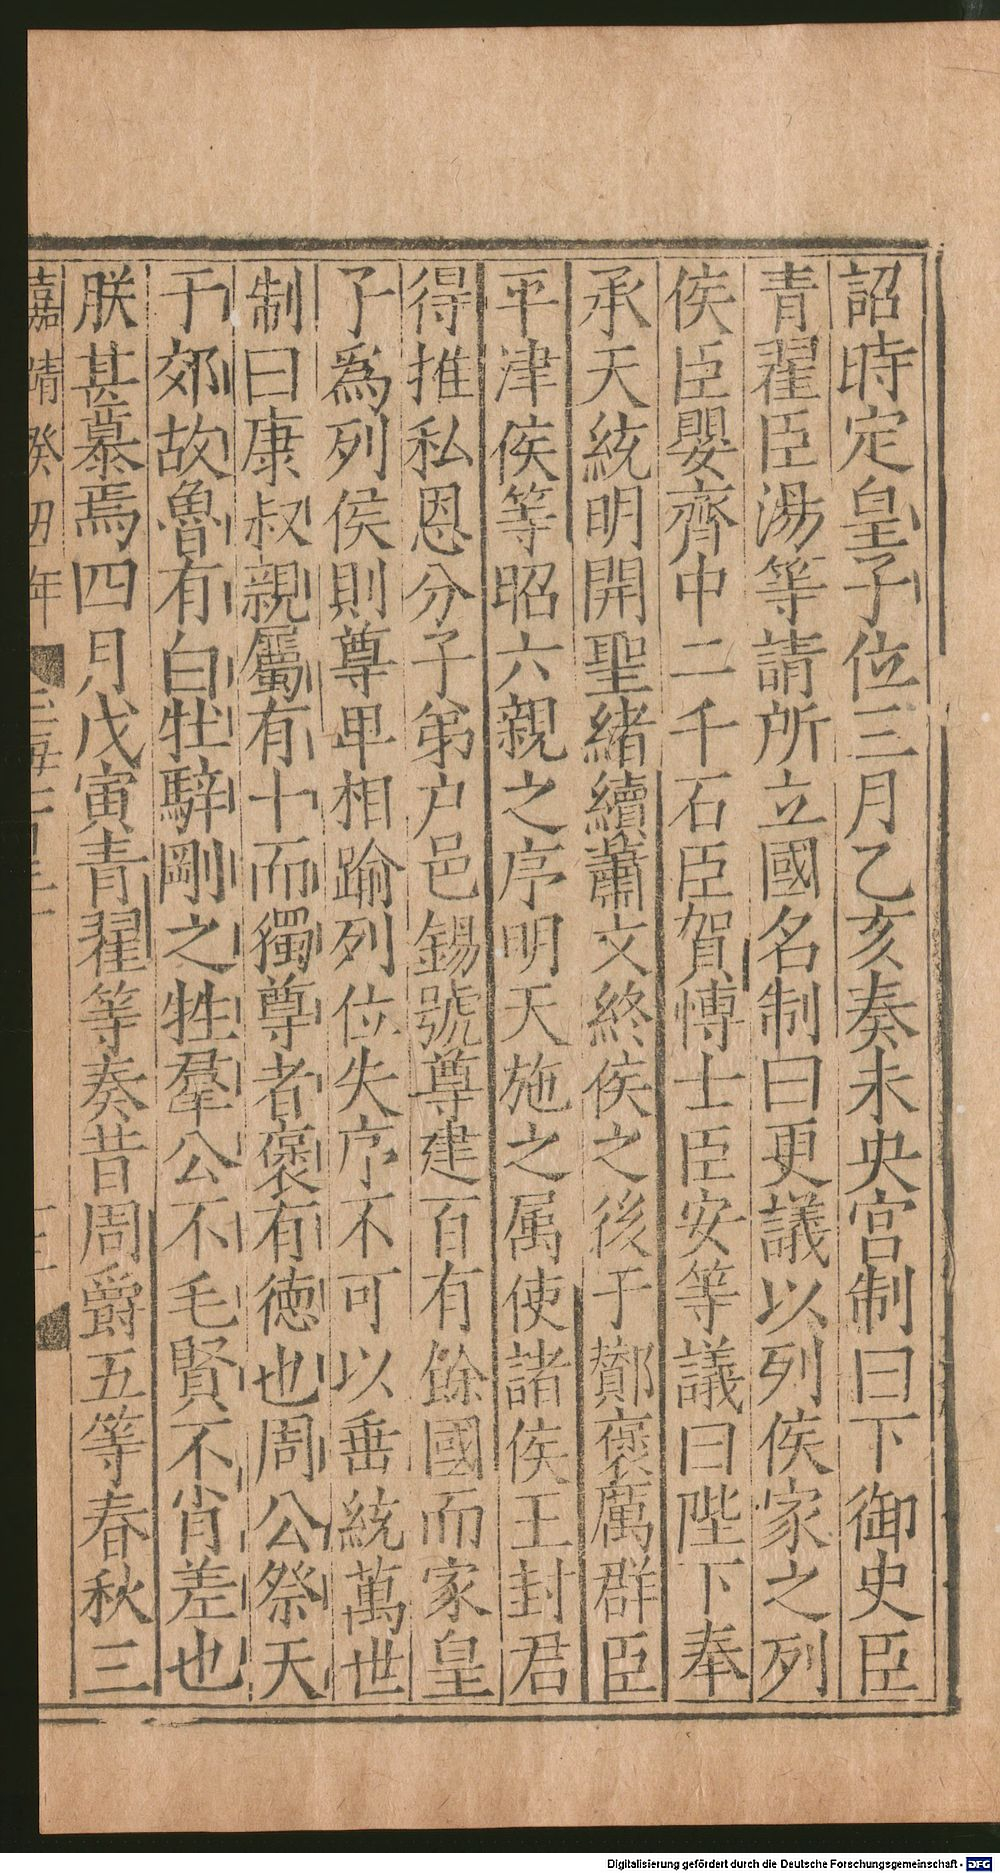 詔時定皇子位三月乙亥奏未央宮制曰下御史臣
青翟臣湯等請所立國名制曰更議以列侯家之列
侯臣嬰齊中二千石臣賀博士臣安等議曰陛下奉
承天統明開聖緒續蕭文終侯之後于酇褒厲群臣
平津侯等昭六親之序明天施之属使諸侯王封君
得推私恩分子弟户邑錫號尊建百有餘國而家皇
子爲列侯則尊卑相踰列位失序不可以垂統萬世
制曰康叔親屬有十而獨尊者褒有德也周公祭天
于郊故魯有白牡騂剛之牲羣公不毛賢不肖差也
朕甚慕焉四月戊寅青翟等奏昔周爵五等春秋三
嘉靖癸丑年
Digitalisierung gefördert durch die Deutsche Forschungsgemeinschaft - DFG